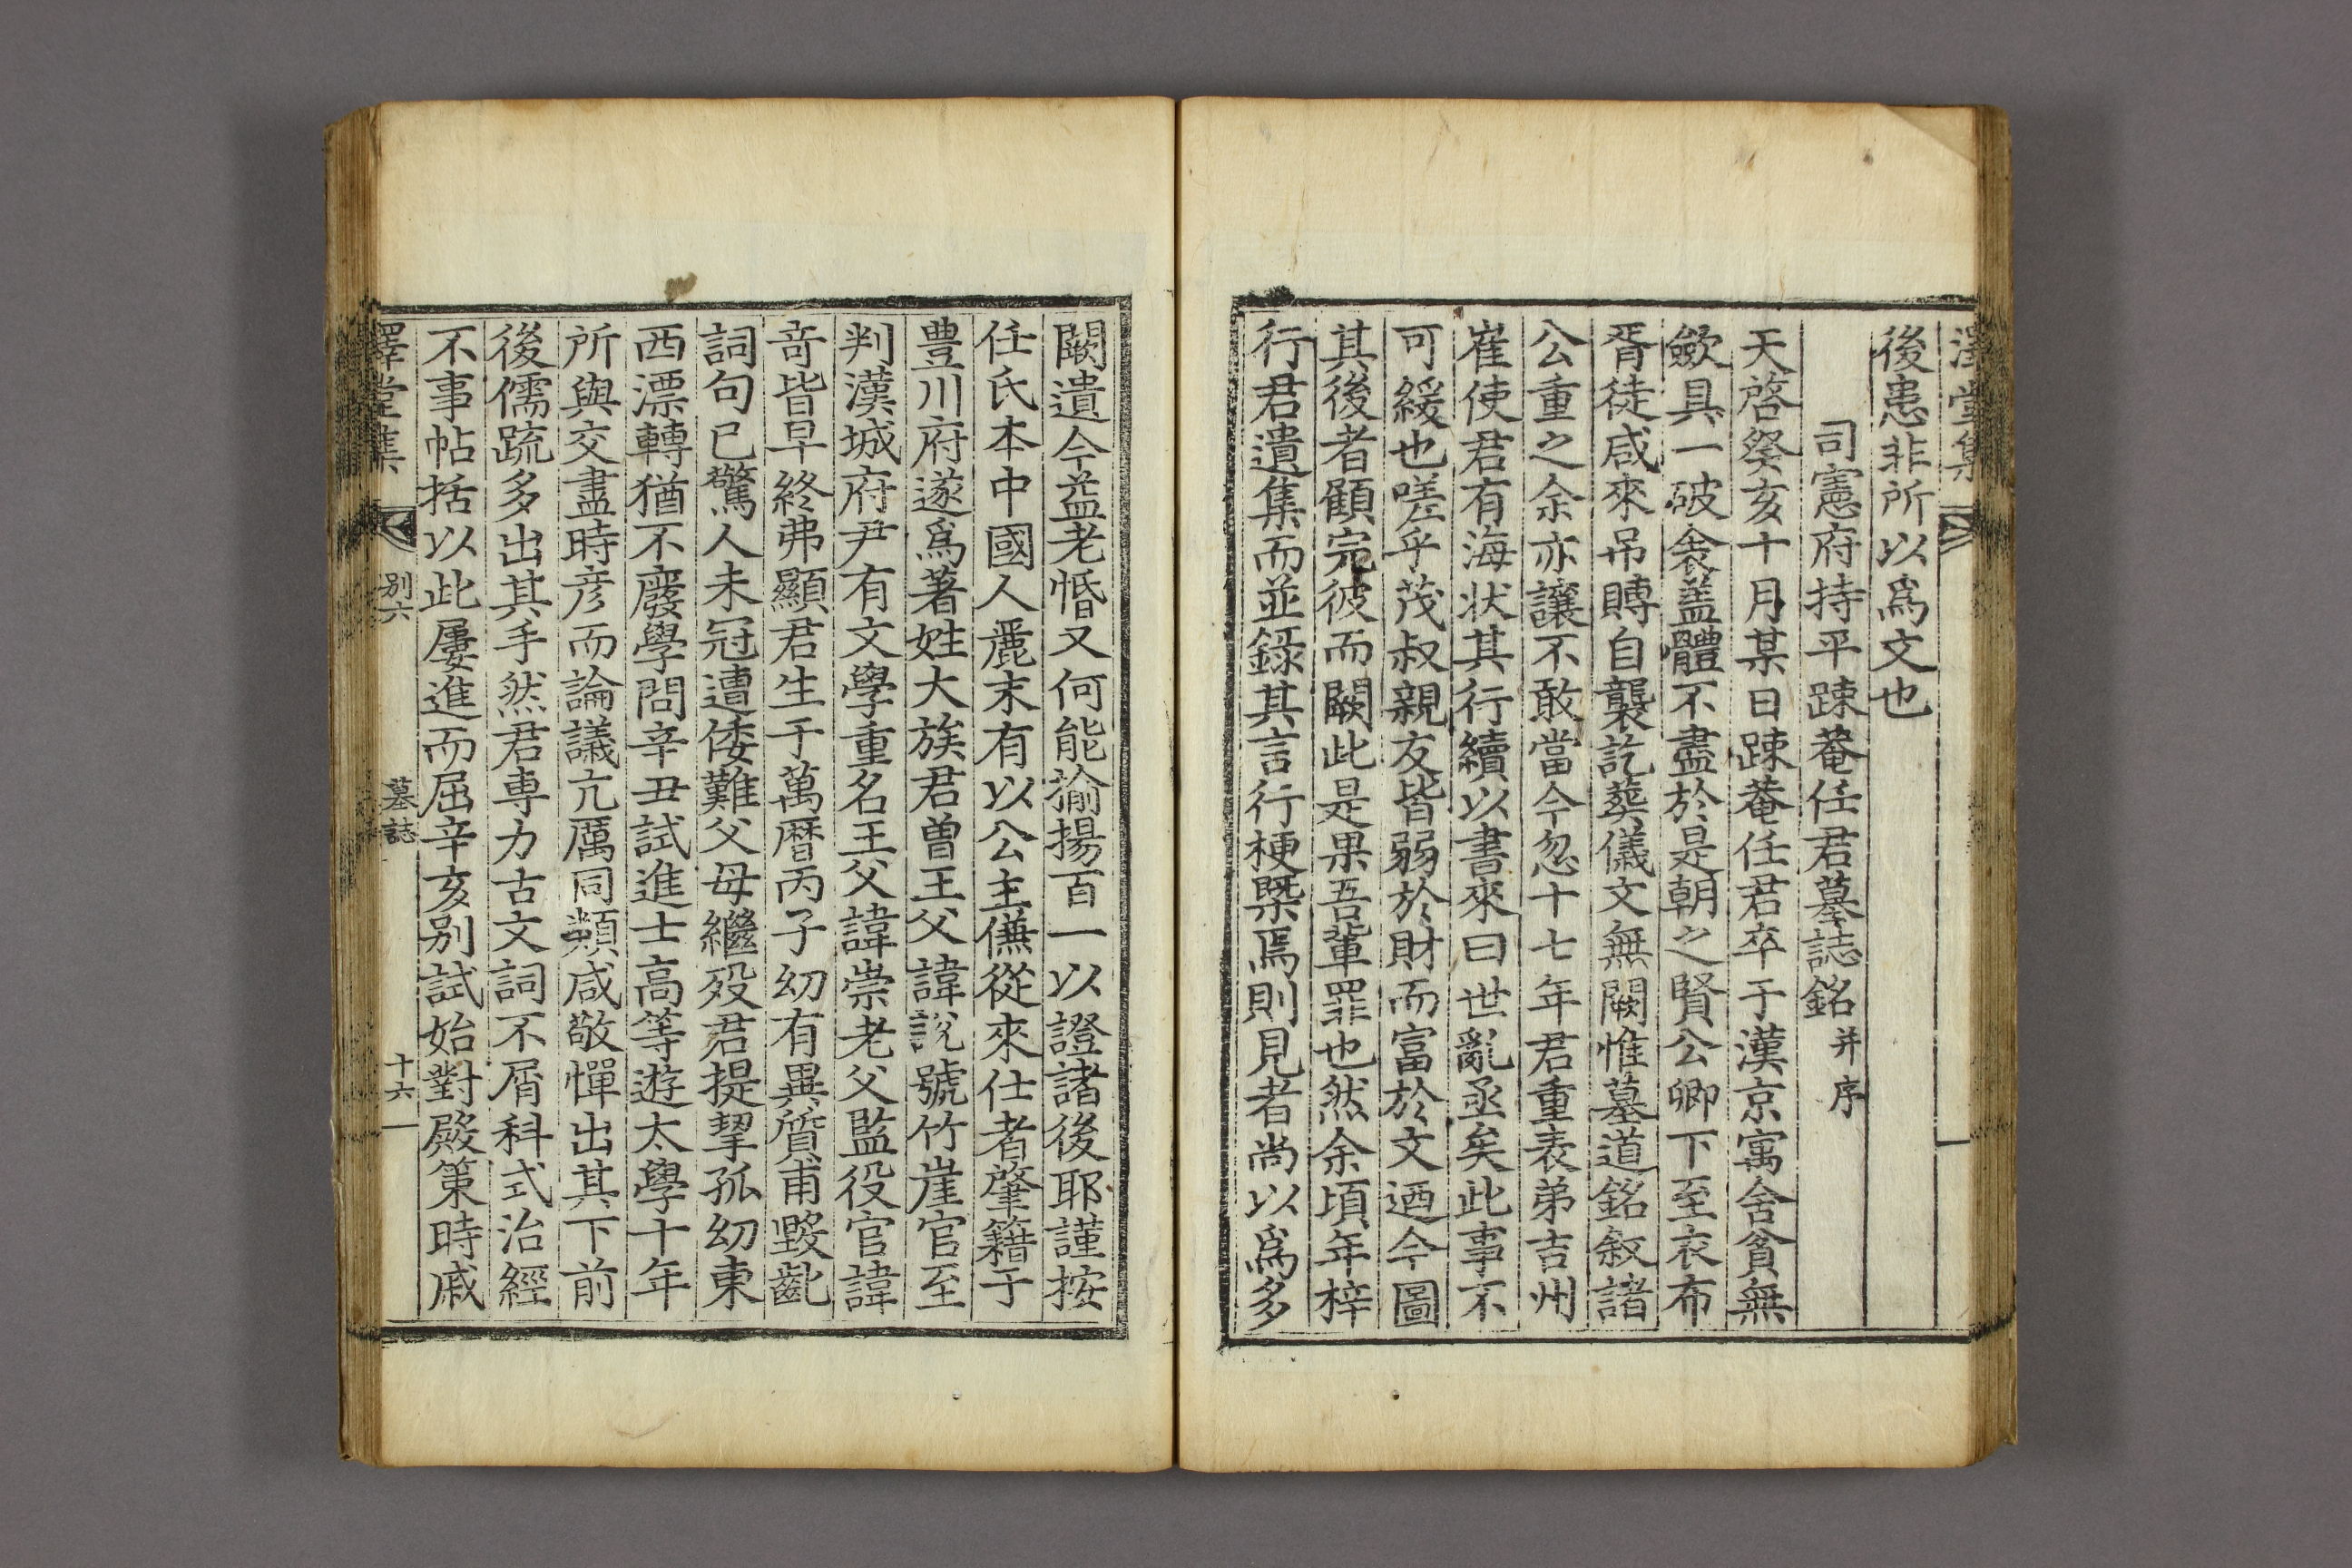 澤堂集
後患非所以爲文也
司憲府持平踈菴任君墓誌銘 并序
天啓癸亥十月某日踈菴任君卒于漢京寓舍貧無
斂具一破衾蓋體不盡於是朝之賢公卿下至衣布
胥徒咸來吊賻自襲訖葬儀文無闕惟墓道銘敍諸
公重之余亦讓不敢當今忽十七年君重表弟吉州
崔使君有海狀其行續以書來曰世亂丞矣此事不
可緩也嗟乎茂叔親友皆弱於財而富於文迺今圖
其後者顧完彼而闕此是果吾輩罪也然余頃年梓
行君遺集而並錄其言行梗槩焉則見者尚以爲多
闕遺今益老惛又何能揄揚百一以證諸後耶謹按
任氏本中國人麗末有以公主傔從來仕者肇籍于
豊川府遂爲著姓大族君曾王父諱說號竹崖官至
判漢城府尹有文學重名王父諱崇老父監役官諱
奇皆早終弗顯君生于萬曆丙子幼有異質甫毀齓
詞句已驚人未冠遭倭難父母繼歿君提挈孤幼東
西漂轉猶不廢學問辛丑試進士高等遊太學十年
所與交盡時彦而論議亢厲同類咸敬憚出其下前
後儒疏多出其手然君專力古文詞不屑科式治經
不事帖括以此屢進而屈辛亥别試始對殿策時戚
澤堂集 别六 墓誌 十六